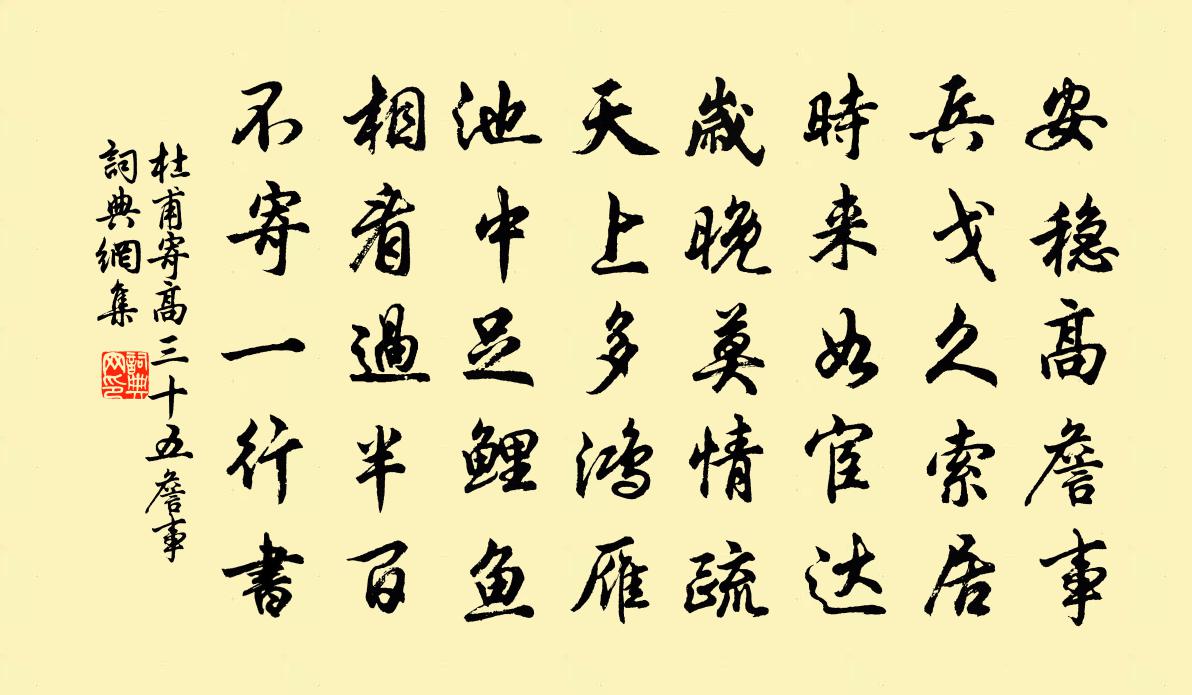 安穏高詹事
兵戈久索居
時来如宦达
歳晚莫情疏
天上多鸿雁
池中足鯉鱼
相看過半百
不寄一行書
杜甫寄高三十五詹事
詞典網集
詞典网印